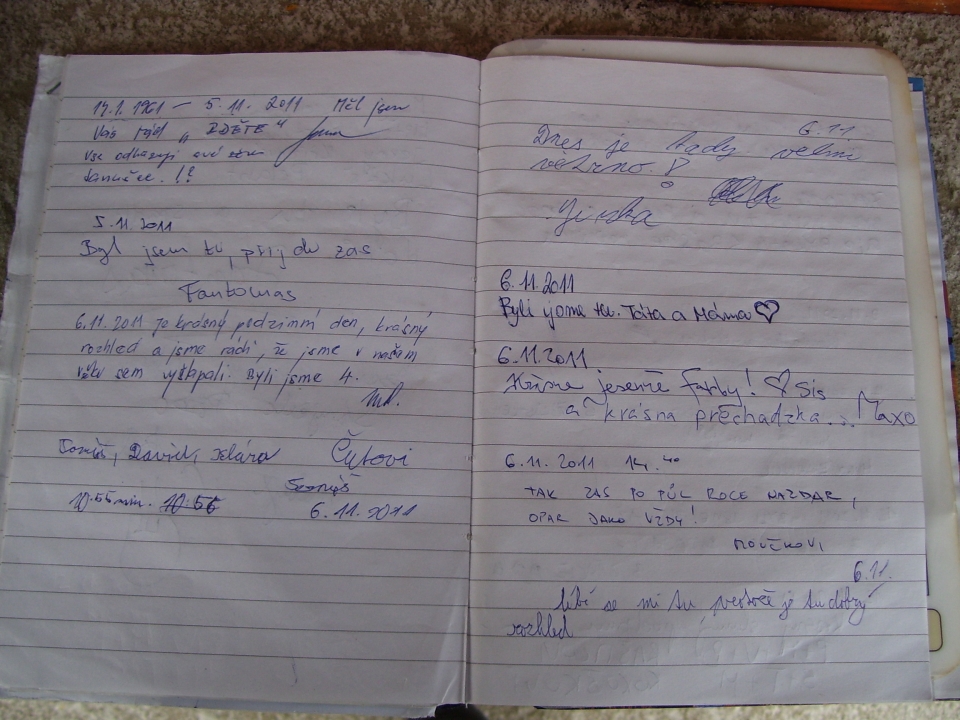 5.11.2011 Měl jsem
Vás rád
vše odkazuji
5.11.2011
Byl jsem tu, přijdu zas
Fantomas
6.11.2011 Je krásný podzimní den, krásný
rozhled a jsme rádi, že jsme v našem
věku sem vyšlapali. Byli jsme 4.
Tomáš, David, Klára
10:55 min. 10:56
6.11.2011
6.11
Dnes je tady velmi
větrno!
Jirka
6.11.2011
Byli jsme tu. Táta a Máma ♡
6.11.2011
Krásne jesenné farby! ♡ Sis
a krásna prechádzka... Maxo
6.11.2011 14.40
TAK ZAS PO PŮL ROCE NAZDAR,
OPAR JAKO VŽDY!
6.11.
líbí se mi tu, protože je tu dobrý
rozhled